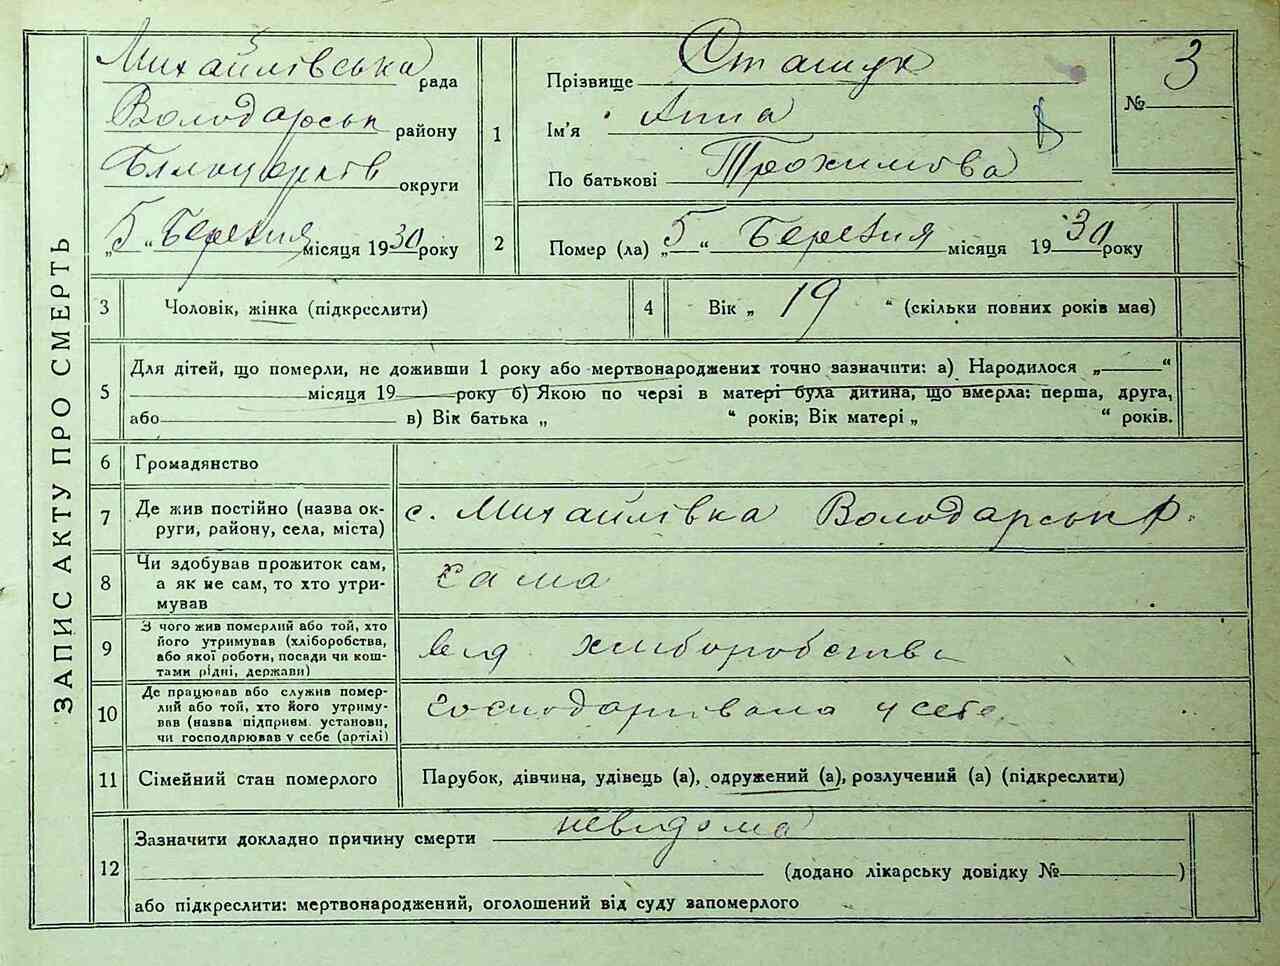 ЗАПИС АКТУ ПРО СМЕРТЬ
Михайлівська рада
Володарськ району
Білоцерків округи
„5“ Березня місяця 1930 року
1
Прізвище Сташук
Ім'я Анна
По батькові Трохимова
№ 3
2
Помер (ла) „5“ Березня місяця 1930 року
3
Чоловік, жінка (підкреслити)
4
Вік „19“ (скільки повних років має)
5
Для дітей, що померли, не доживши 1 року або мертвонароджених точно зазначити: а) Народилося „ “
місяця 19 року б) Якою по черзі в матері була дитина, що вмерла: перша, друга,
або в) Вік батька „ “ років; Вік матері „ “ років.
6
Громадянство
7
Де жив постійно (назва ок-
руги, району, села, міста)
с. Михайлівка Володарськ р.
8
Чи здобував прожиток сам,
а як не сам, то хто утри-
мував
сама
9
З чого жив померлий або той, хто
його утримував (хліборобства,
або якої роботи, посади чи кош-
тами рідні, держави)
від хліборобства
10
Де працював або служив помер-
лий або той, хто його утриму-
вав (назва підприєм. установи,
чи господарював у себе (артілі)
Господарювала у себе
11
Сімейний стан померлого
Парубок, дівчина, удівець (а), одружений (а), розлучений (а) (підкреслити)
12
Зазначити докладно причину смерти невідома
(додано лікарську довідку № )
або підкреслити: мертвонароджений, оголошений від суду запомерлого